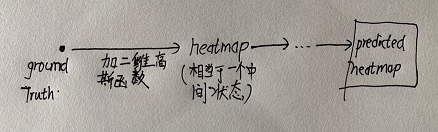 ground
Truth.
加二维高
斯函数
heatmap
(相当于一个中
间状态)
...
predicted
heatmap